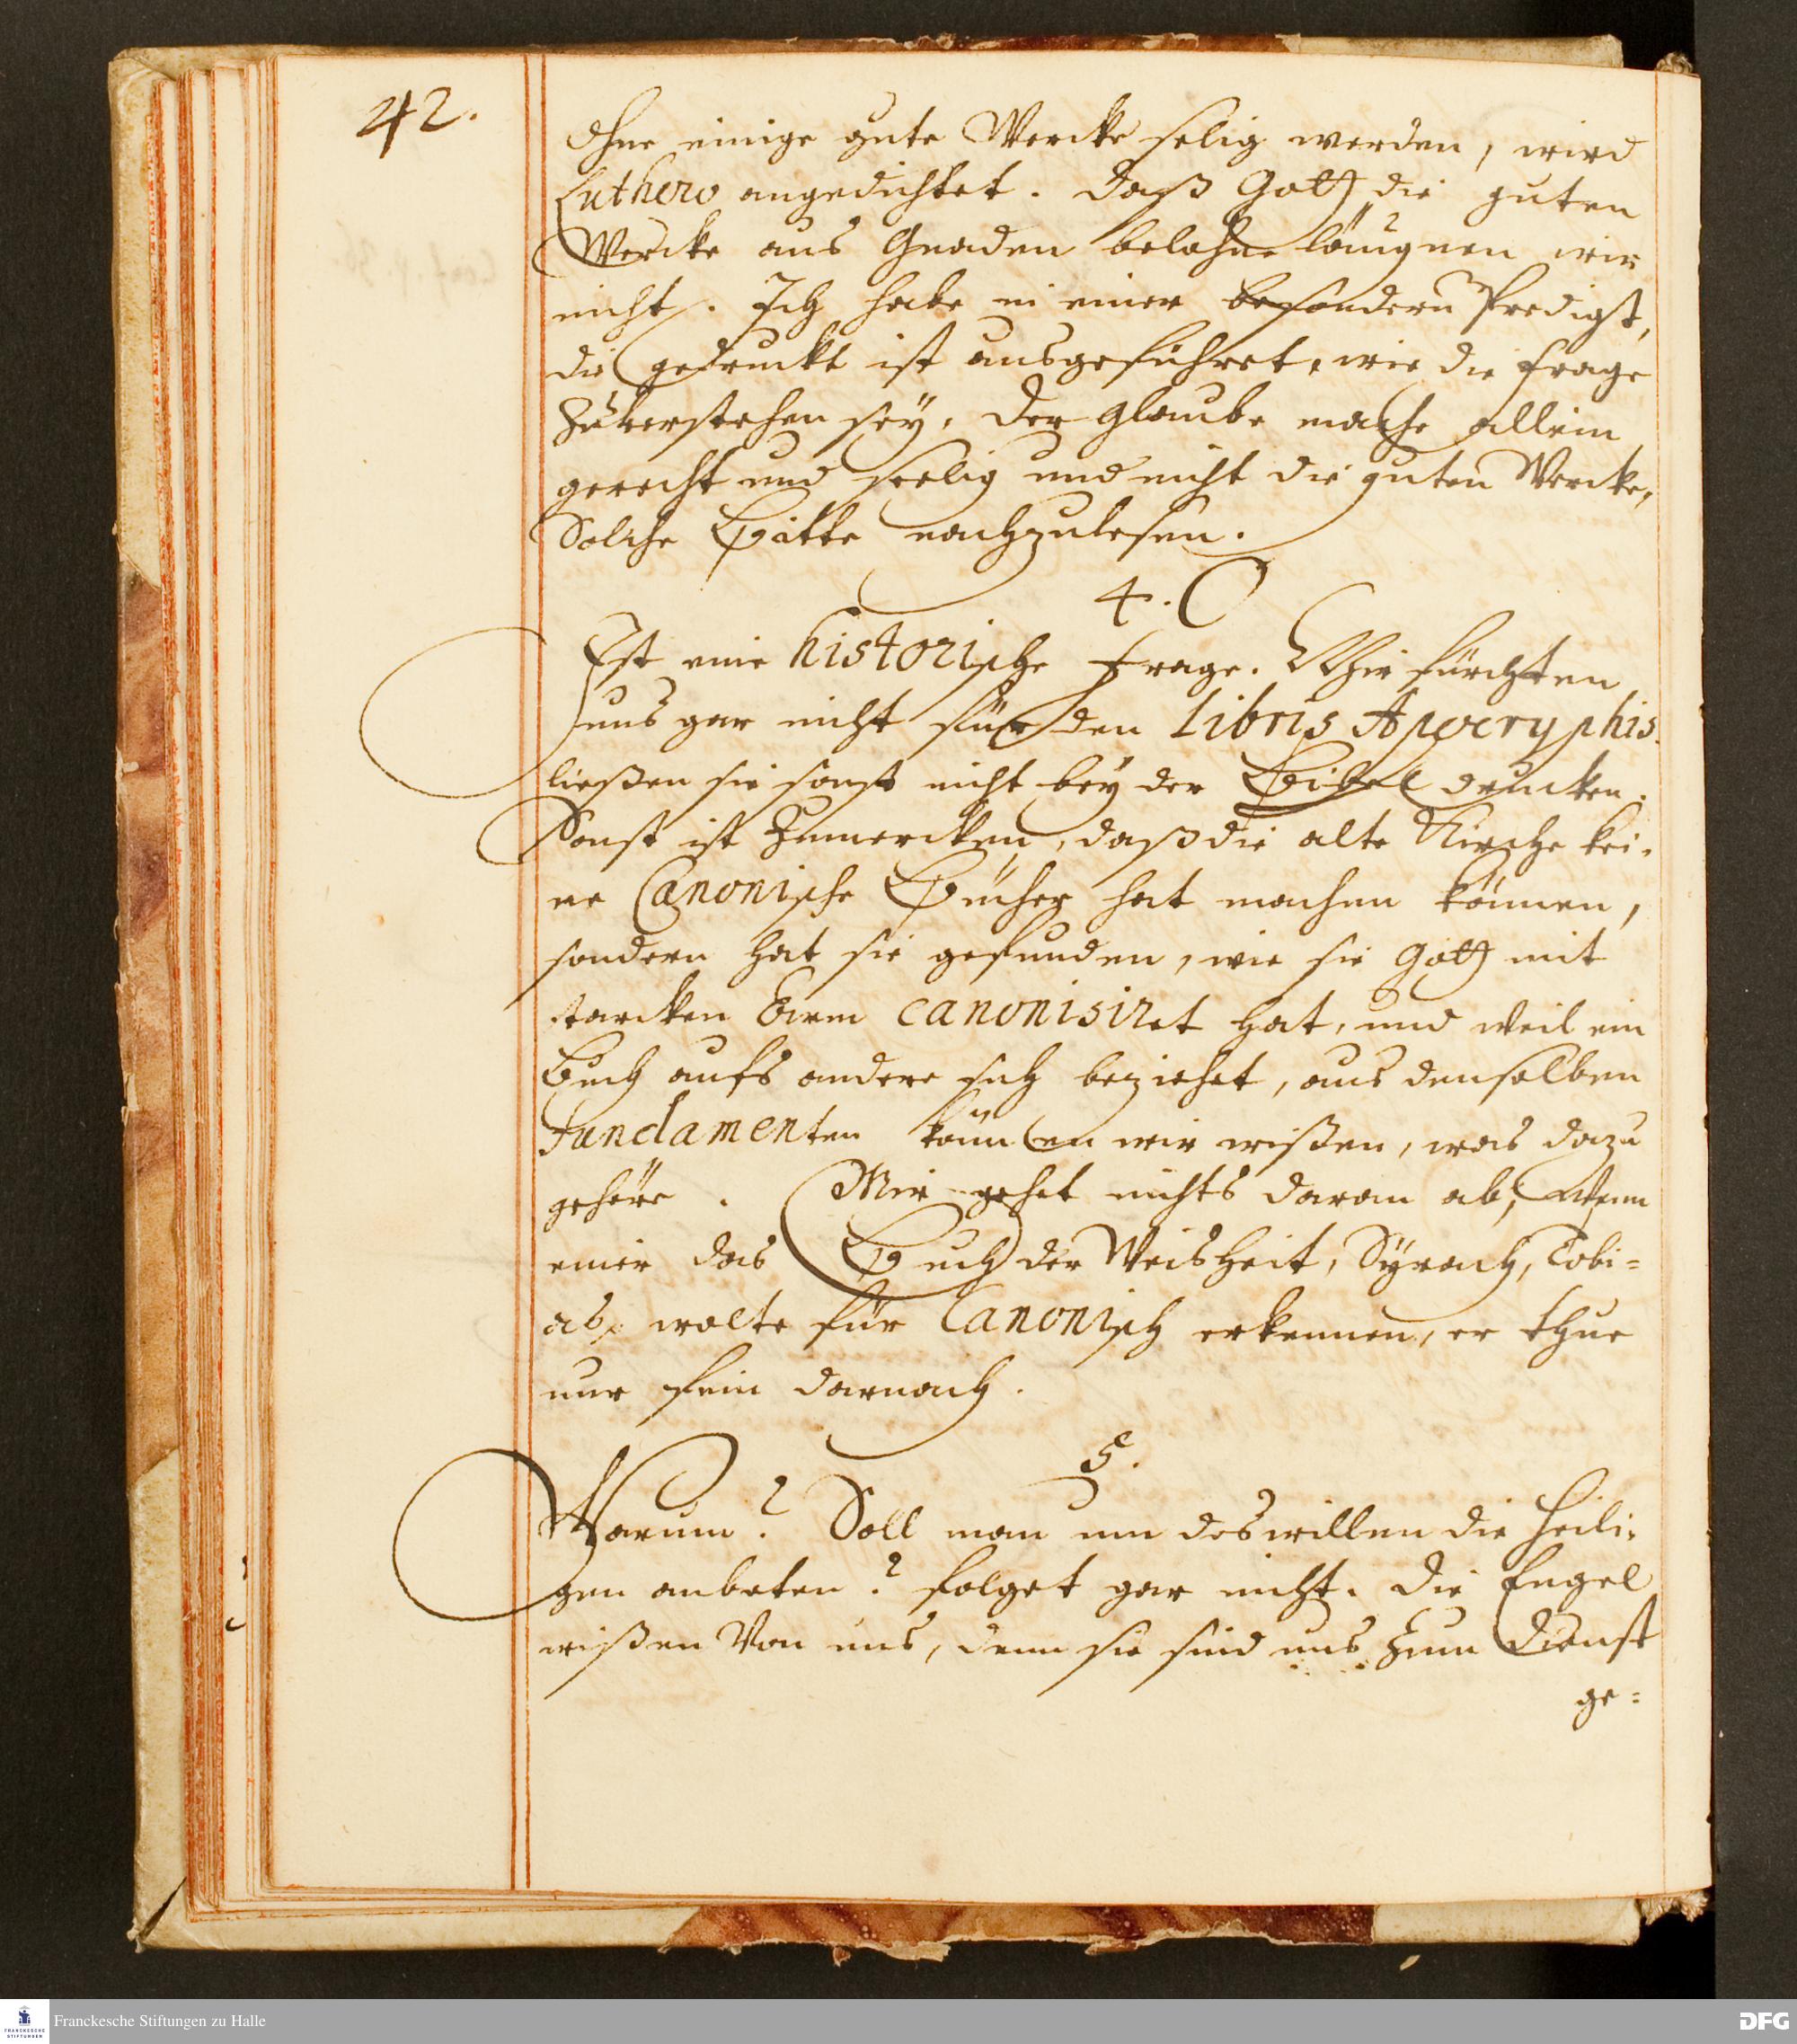 42.
Ohne einige gute Wercke selig werden, wird
Luthero angedichtet. Daß Gott die guten
Wercke aus Gnaden belohne läugnen wir
nicht. Ich habe in einer besondern Predigt,
die gedruckt ist ausgeführet, wie die Frage
zuverstehen sey, der Glaube mache allein
gerecht und seelig und nicht die guten Wercke,
Solche bitte nachzulesen.
4.
Ist eine historische Frage. Wir fürchten
uns gar nicht für den Libris Apocryphis.
ließen sie sonst nicht bey der Bibel drucken.
Sonst ist zumercken, daß die alte Kirche kei-
ne Canonische Bücher hat machen können,
sondern hat sie gefunden, wie sie Gott mit
starcken Arm canonisiret hat, und weil ein
Buch aufs andere sich beziehet, aus denselben
Fundamenten können wir wißen, was dazu
gehöre. Mir gehet nichts daran ab, wenn
einer das Buch der Weisheit, Syrach, Tobi=
as, wolte für Canonisch erkennen, er thue
nur fein darnach.
5.
Warum? Soll man um deswillen die Heili-
gen anbeten? folget gar nicht. Die Engel
wißen Von uns, denn sie sind uns zum Dienst
ge=
Franckesche Stiftungen zu Halle
FRANCKESCHE STIFTUNGEN
DFG